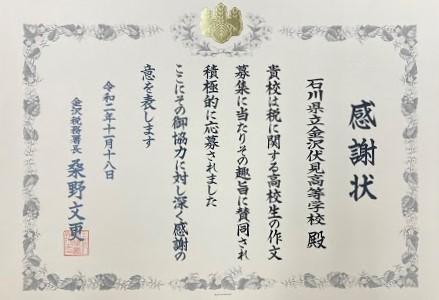 感謝状
石川県立金沢伏見高等学校 殿
貴校は税に関する高校生の作文
募集に当たりその趣旨に賛同され
積極的に応募されました
ここにその御協力に対し深く感謝の
意を表します
令和二年十一月十八日
金沢税務署長 桑野文更